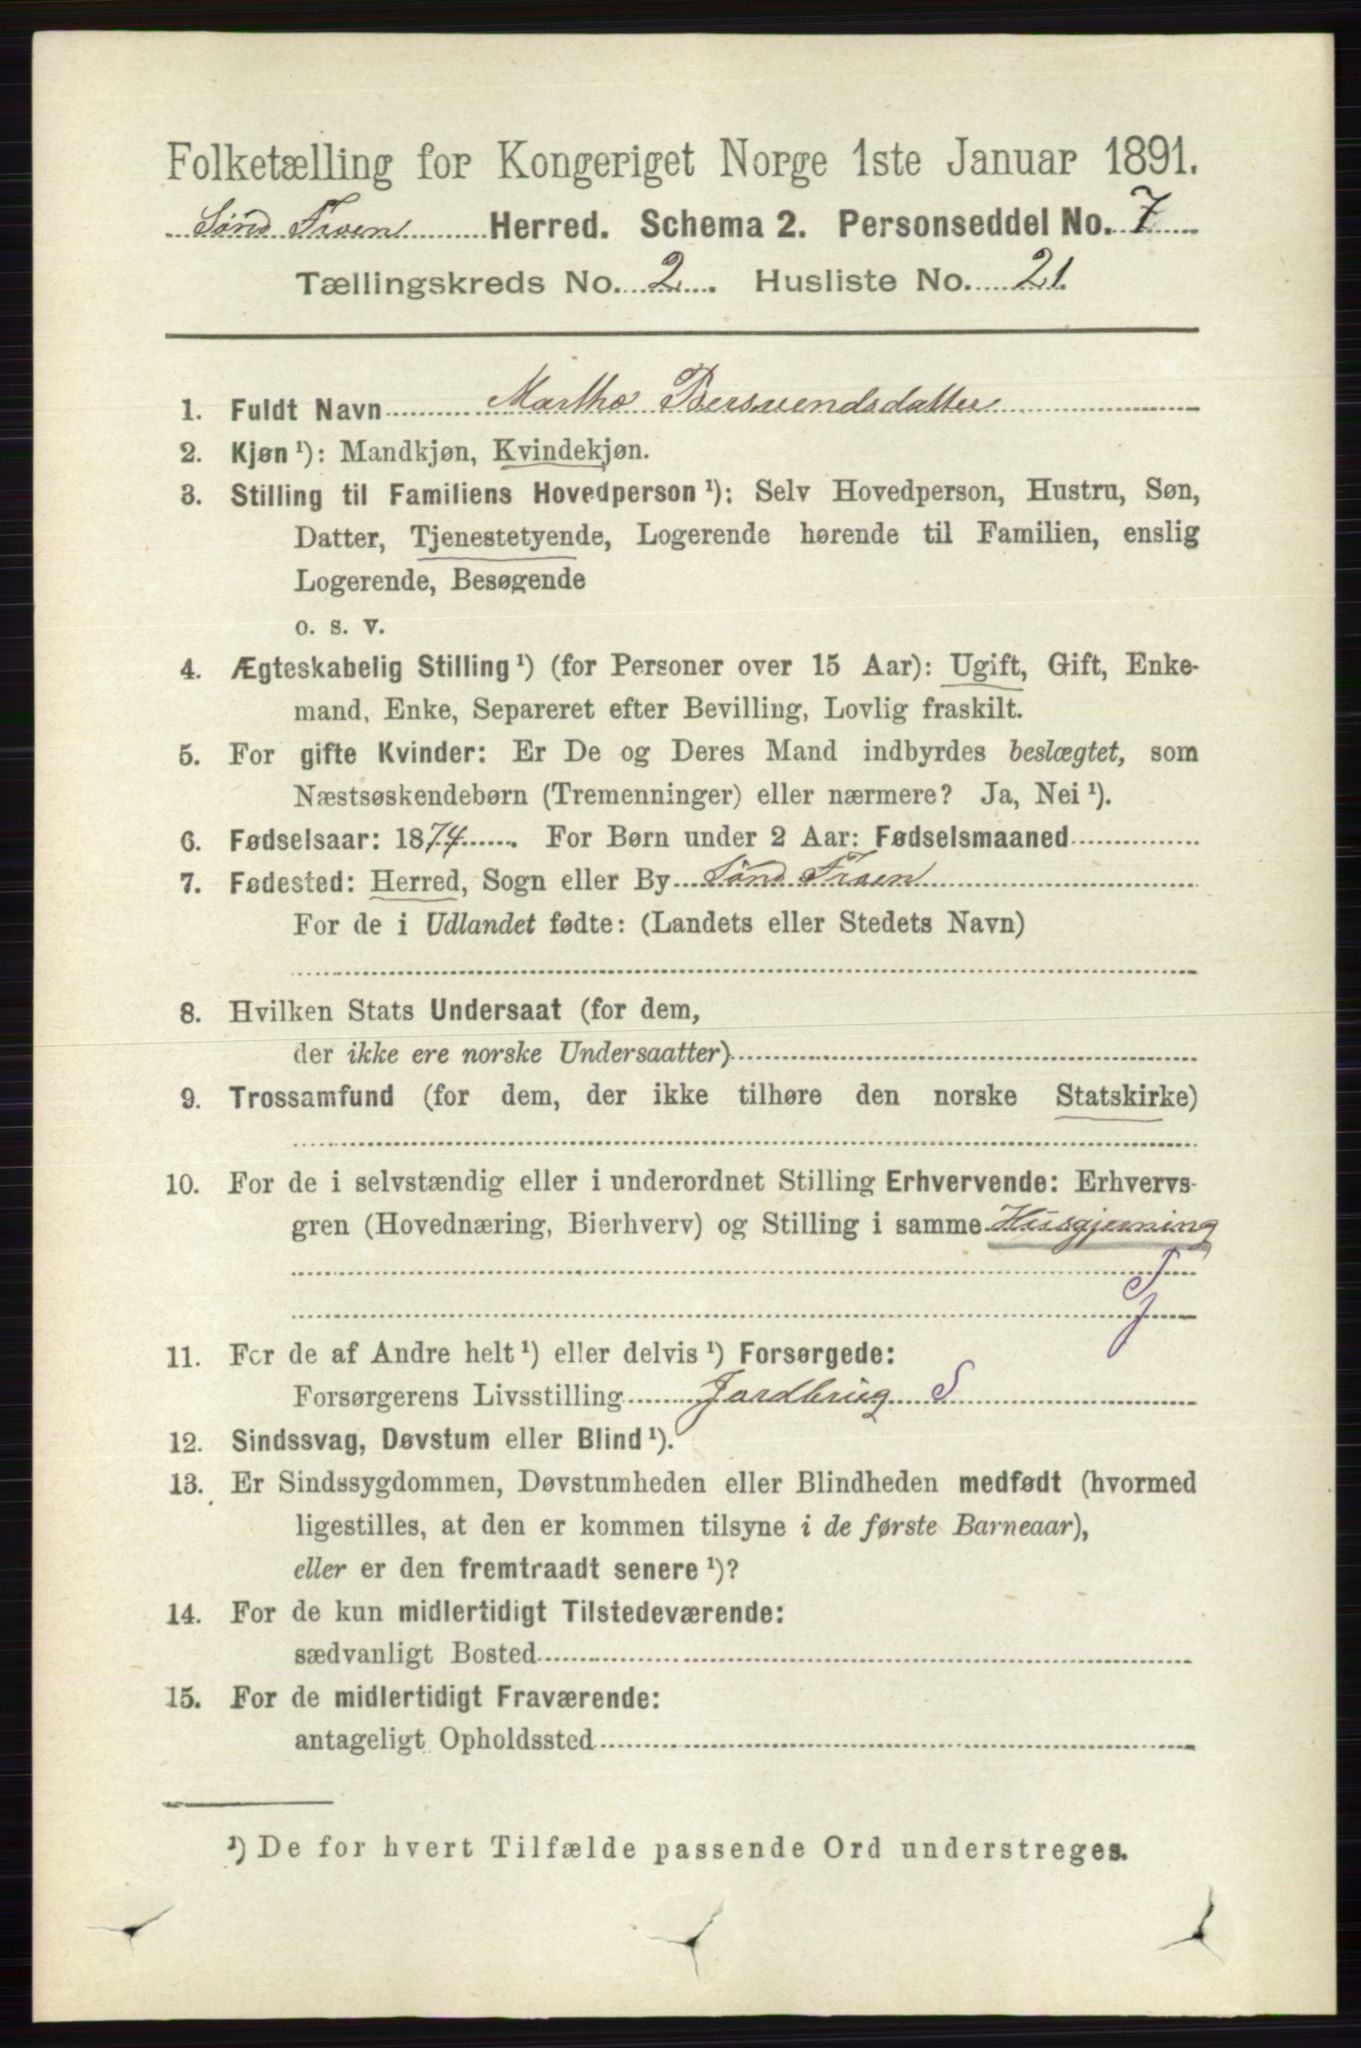 Folketælling for Kongeriget Norge 1ste Januar 1891.
Sønd Froen Herred. Schema 2. Personseddel No. 7
Tællingskreds No. 2. Husliste No. 21.
1. Fuldt Navn Martha Bersvendsdatter
2. Kjøn ¹): Mandkjøn, Kvindekjøn.
3. Stilling til Familiens Hovedperson ¹): Selv Hovedperson, Hustru, Søn,
Datter, Tjenestetyende, Logerende hørende til Familien, enslig
Logerende, Besøgende
o. s. v.
4. Ægteskabelig Stilling ¹) (for Personer over 15 Aar): Ugift, Gift, Enke-
mand, Enke, Separeret efter Bevilling, Lovlig fraskilt.
5. For gifte Kvinder: Er De og Deres Mand indbyrdes beslægtet, som
Næstsøskendebørn (Tremenninger) eller nærmere? Ja, Nei ¹).
6. Fødselsaar: 1874. For Børn under 2 Aar: Fødselsmaaned
7. Fødested: Herred, Sogn eller By Sønd Froen
For de i Udlandet fødte: (Landets eller Stedets Navn)
8. Hvilken Stats Undersaat (for dem,
der ikke ere norske Undersaatter)
9. Trossamfund (for dem, der ikke tilhøre den norske Statskirke)
10. For de i selvstændig eller i underordnet Stilling Erhvervende: Erhvervs-
gren (Hovednæring, Bierhverv) og Stilling i samme Husgjerning
T
11. For de af Andre helt ¹) eller delvis ¹) Forsørgede:
Forsørgerens Livsstilling Jordbrug S
12. Sindssvag, Døvstum eller Blind ¹).
13. Er Sindssygdommen, Døvstumheden eller Blindheden medfødt (hvormed
ligestilles, at den er kommen tilsyne i de første Barneaar),
eller er den fremtraadt senere ¹)?
14. For de kun midlertidigt Tilstedeværende:
sædvanligt Bosted
15. For de midlertidigt Fraværende:
antageligt Opholdssted
¹) De for hvert Tilfælde passende Ord understreges.